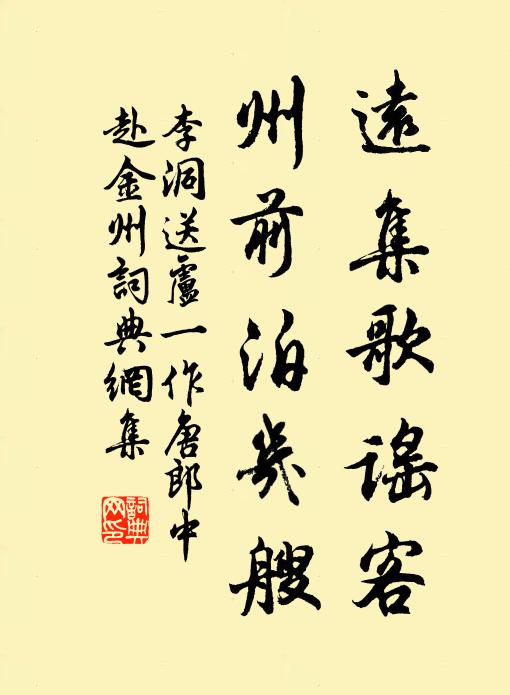 遠集歌謠客
州前泊幾艘
李洞送盧一作唐郎中
赴金州詞典網集
詞典
网印